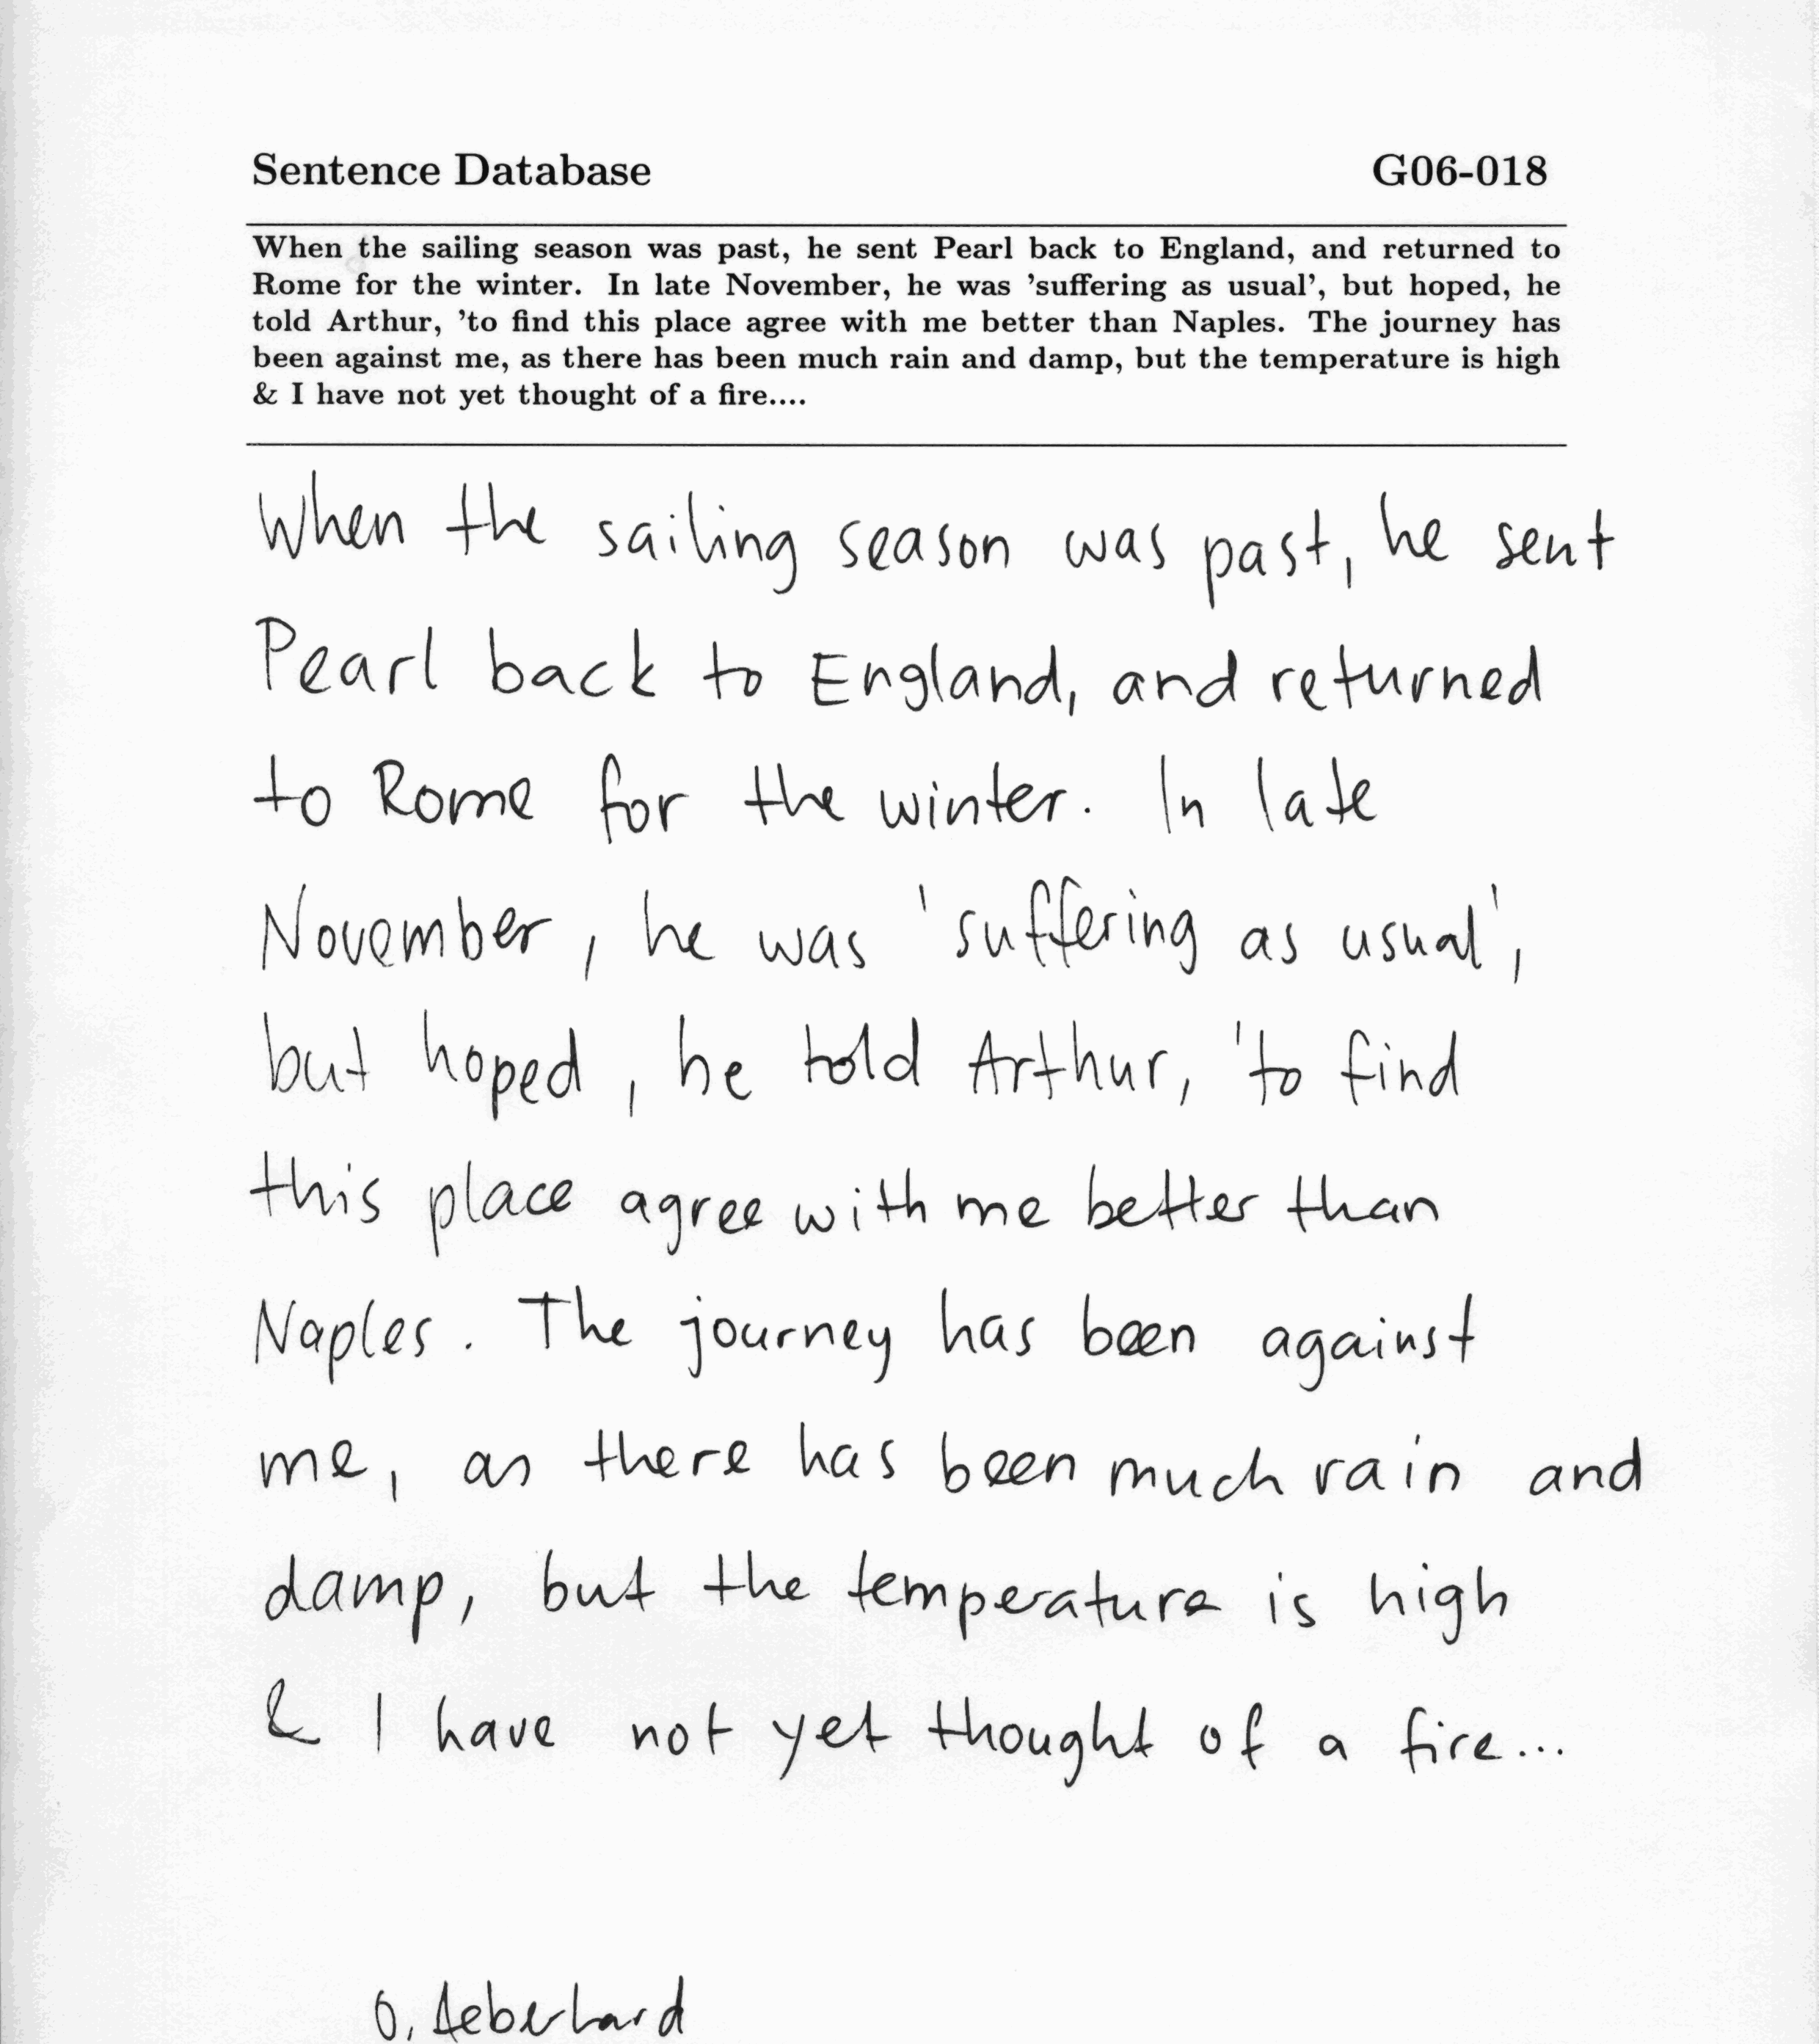 Sentence Database G06-018
When the sailing season was past, he sent Pearl back to England, and returned to
Rome for the winter. In late November, he was 'suffering as usual', but hoped, he
told Arthur, 'to find this place agree with me better than Naples. The journey has
been against me, as there has been much rain and damp, but the temperature is high
& I have not yet thought of a fire....
When the sailing season was past, he sent
Pearl back to England, and returned
to Rome for the winter. In late
November, he was 'suffering as usual',
but hoped, he told Arthur, 'to find
this place agree with me better than
Naples. The journey has been against
me, as there has been much rain and
damp, but the temperature is high
& I have not yet thought of a fire...
O. Aeberhard